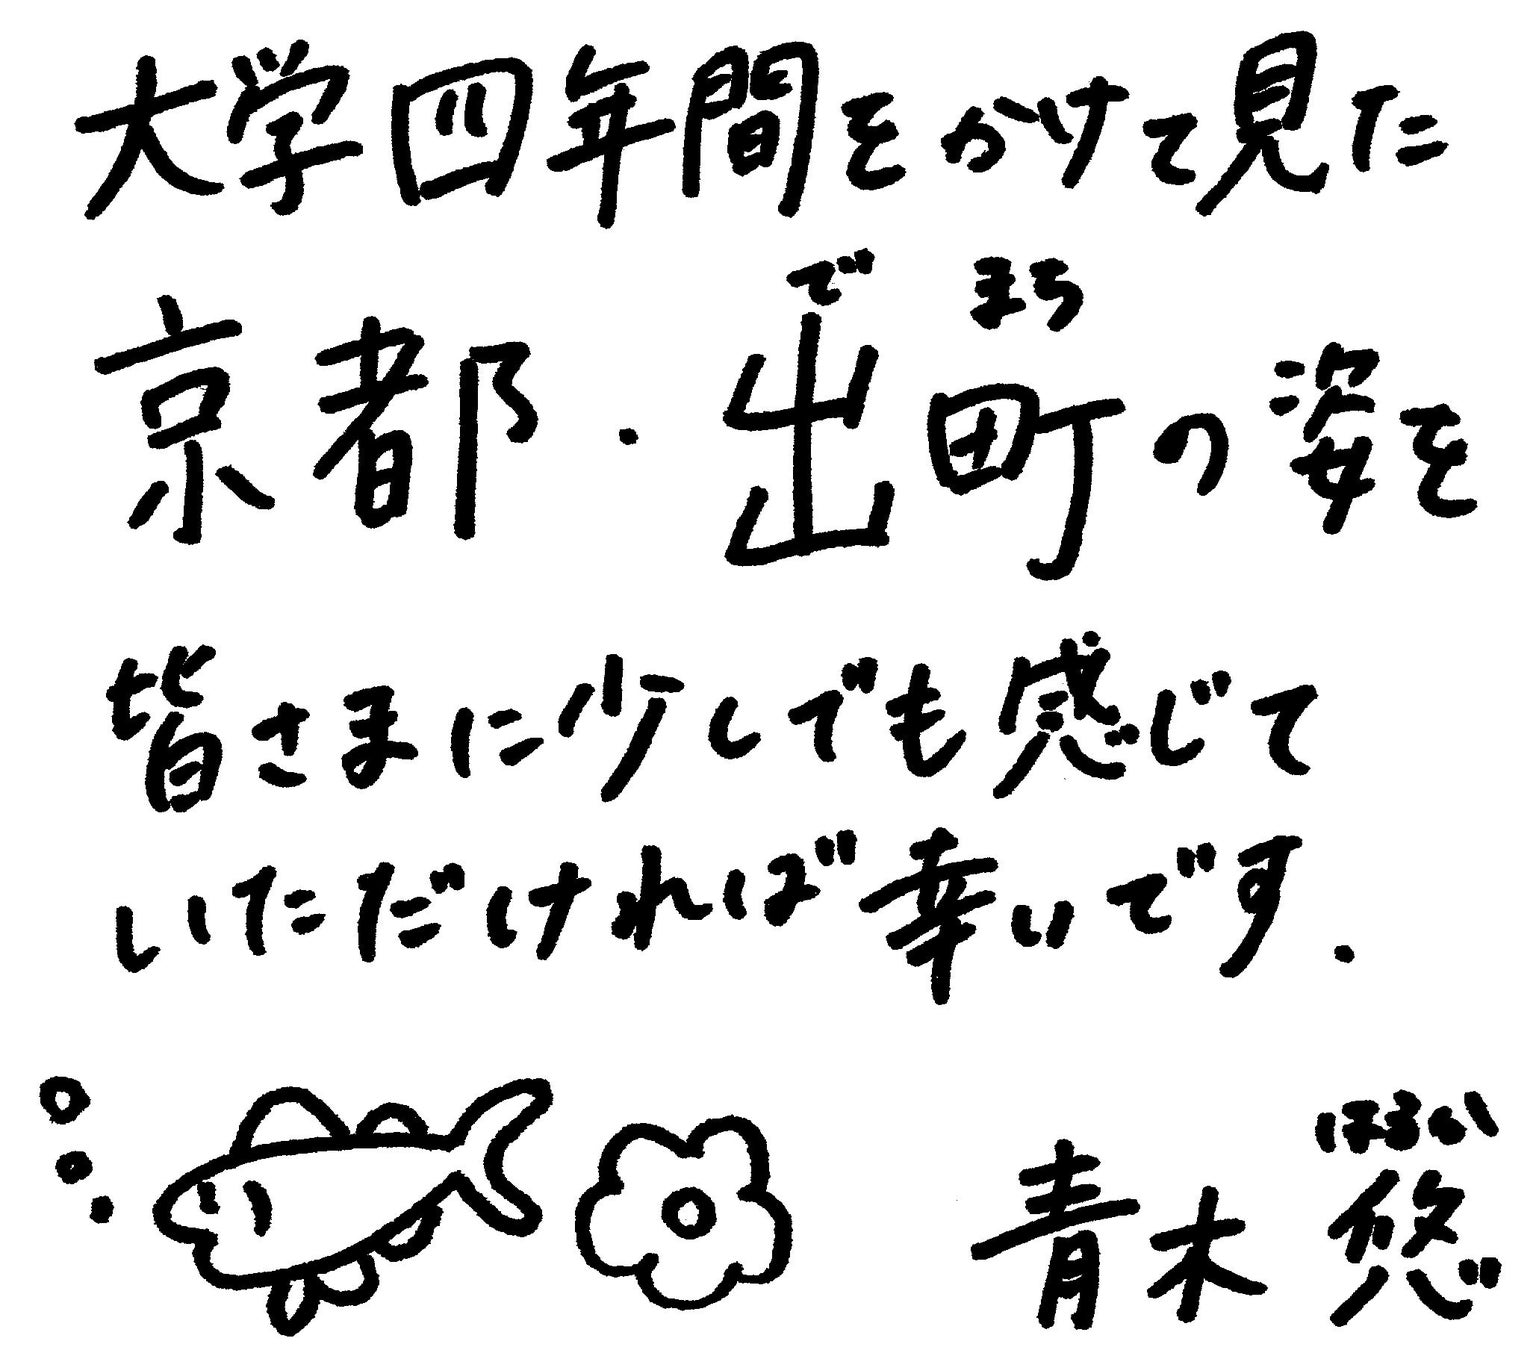 大学四年間をかけて見た
でまち
京都・出町の姿を
皆さまに少しでも感じて
いただければ幸いです.
はるい
青木悠